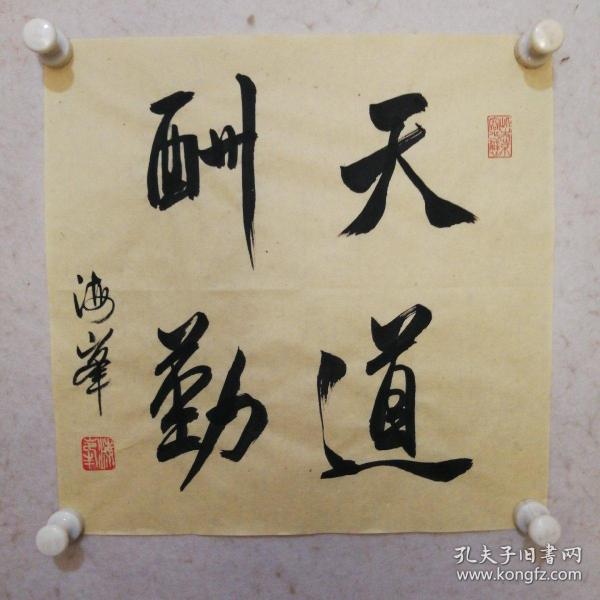 天道
酬勤
海峯
孔夫子旧書网
www.kongfz.com